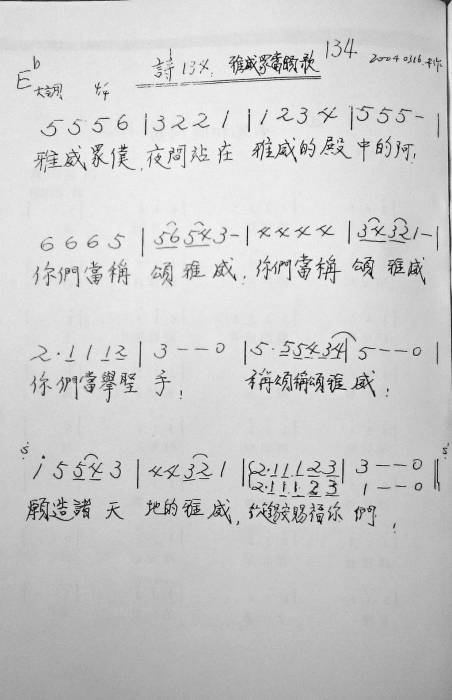 E♭大調 4/4 詩134. 雅威眾當頌歌 134 20040316.
5 5 5 6 | 3 2 2 1 | 1 2 3 4 | 5 5 5 - |
雅威眾僕,夜間站在 雅威的殿中的阿!
6 6 6 5 | 56 54 3 - | 4 4 4 4 | 34 32 1 - |
你們當稱 頌雅威,你們當稱 頌雅威
2 · 1 1 12 | 3 - - 0 | 5 · 55434 | 5 - - 0 |
你們當舉聖 手! 稱頌稱頌雅威!
i 5 54 3 | 44 32 1 | 2·11123 | 3 - - 0 ||
2·11123 | 1 - - 0
願造諸天 地的雅威, 賜福你們!